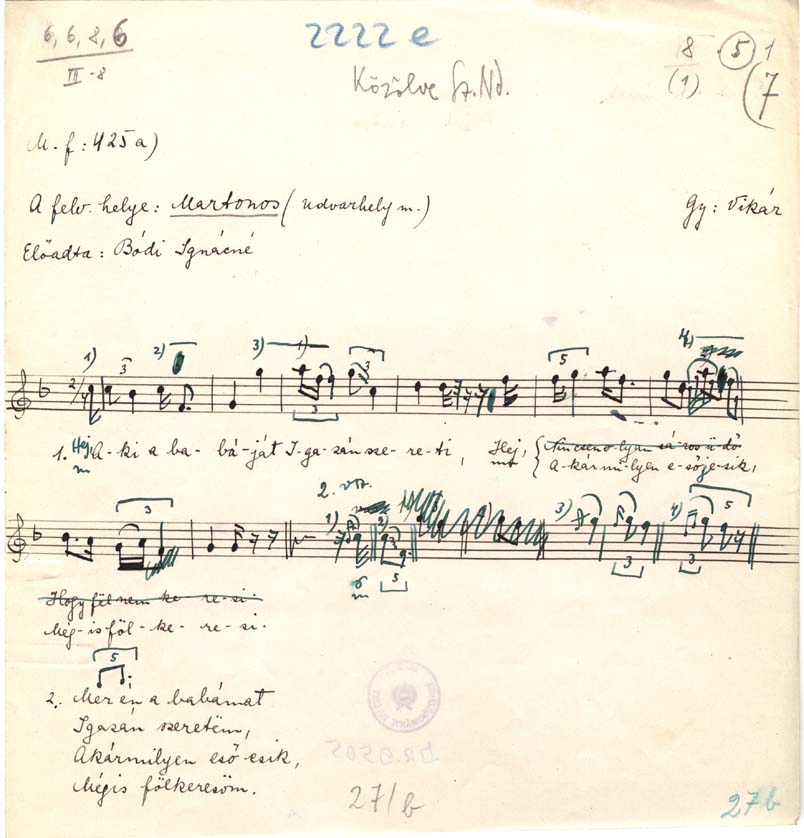 6, 6, 8, 6
III-8
2222 e
Közölve Sz. Nd.
18 5 1
(1) (7
M. f: 425a)
A felv. helye: Martonos (Udvarhely m.)
Gy: Vikár
Előadta: Bódi Ignácné
1) 3 2) 3) 1) 3 5 4)
2/4
3
1. Hej, A-ki a ba-bá-ját I-ga-zán sze-re-ti, Hej, { Nincsen o-lyan sá-ros ü-dő
A-kár-mi-lyen e-ső e-sik,
3 2. vsz. 1) 2) 3) 4) 5
3 5 3 3
Hogy föl nem ke-re-si.
Még-is föl-ke-re-si.
5
2. Mer én a babámat
Igazán szeretëm,
Akármilyen eső esik,
Mégis fölkeresöm.
27/b
27b